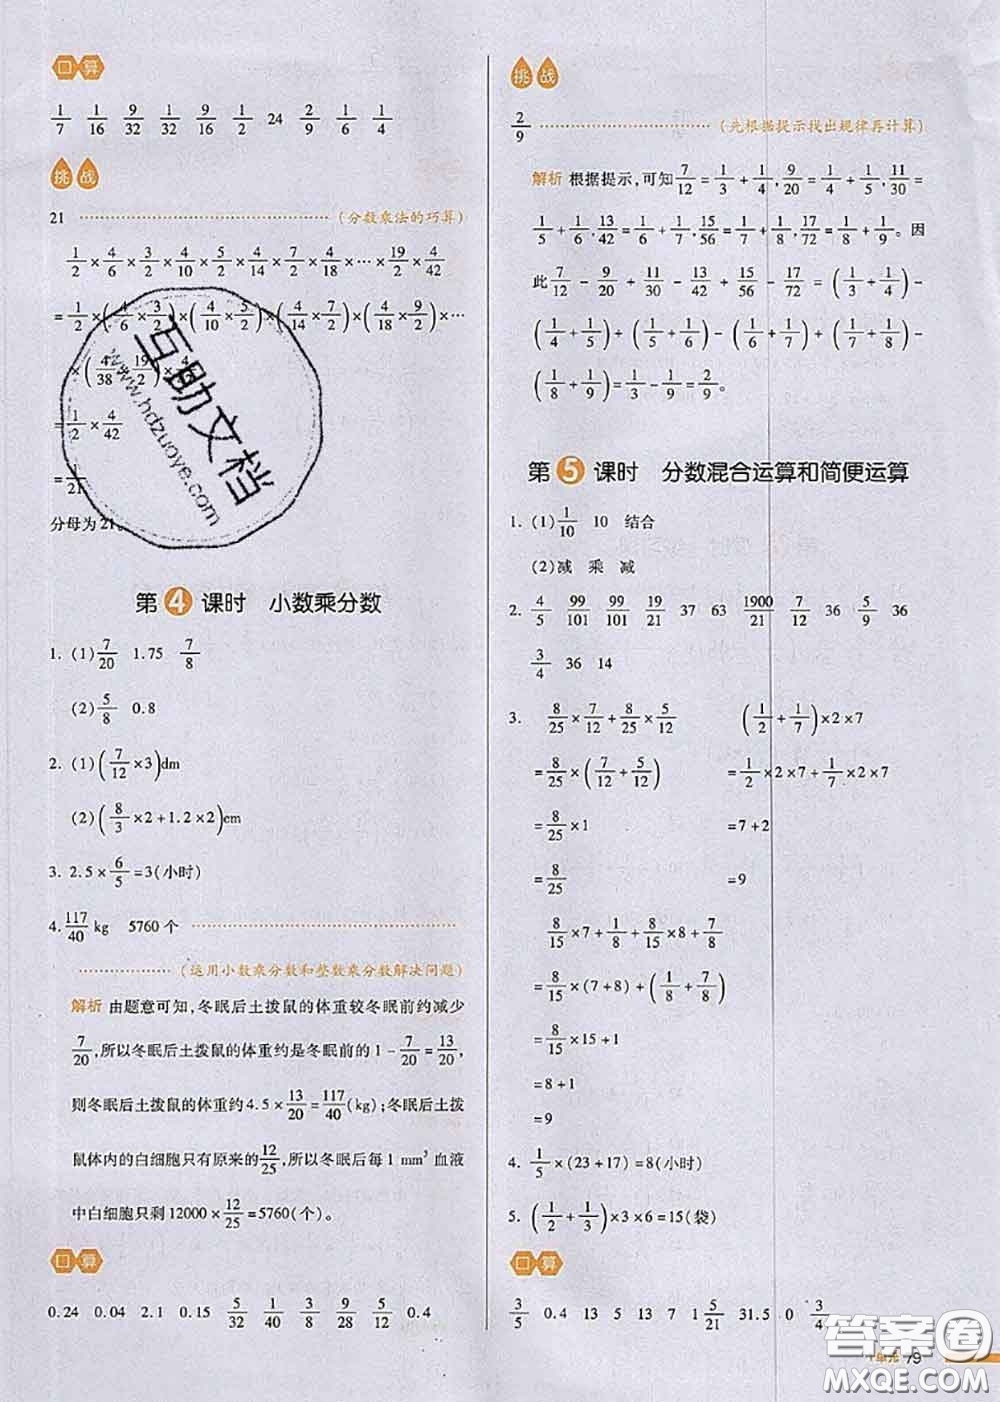 口算
1/7 1/16 9/32 1/32 9/16 1/2 24 2/9 1/6 1/4
挑战
21 (分数乘法的巧算)
1/2×4/6×3/2×4/10×5/2×4/14×7/2×4/18×…×19/2×4/42
=1/2×(4/6×3/2)×(4/10×5/2)×(4/14×7/2)×(4/18×9/2)×…
×(4/38×19/2)×4/42
=1/2×4/42
=1/21
分母为21。
第4课时 小数乘分数
1. (1)7/20 1.75 7/8
(2)5/8 0.8
2. (1)(7/12×3)dm
(2)(8/3×2+1.2×2)cm
3. 2.5×6/5=3(小时)
4. 117/40 kg 5760个
(运用小数乘分数和整数乘分数解决问题)
解析 由题意可知,冬眠后土拨鼠的体重较冬眠前约减少
7/20,所以冬眠后土拨鼠的体重约是冬眠前的1-7/20=13/20,
则冬眠后土拨鼠的体重约4.5×13/20=117/40(kg);冬眠后土拨
鼠体内的白细胞只有原来的12/25,所以冬眠后每1 mm³血液
中白细胞只剩12000×12/25=5760(个)。
口算
0.24 0.04 2.1 0.15 5/32 1/40 3/8 9/28 5/12 0.4
挑战
2/9 (先根据提示找出规律再计算)
解析 根据提示,可知7/12=1/3+1/4,9/20=1/4+1/5,11/30=
1/5+1/6,13/42=1/6+1/7,15/56=1/7+1/8,17/72=1/8+1/9。因
此7/12-9/20+11/30-13/42+15/56-17/72=(1/3+1/4)-
(1/4+1/5)+(1/5+1/6)-(1/6+1/7)+(1/7+1/8)-
(1/8+1/9)=1/3-1/9=2/9。
第5课时 分数混合运算和简便运算
1. (1)1/10 10 结合
(2)减 乘 减
2. 4/5 99/101 99/101 19/21 37 63 1900/21 7/12 36 5/9 36
3/4 36 14
3. 8/25×7/12+8/25×5/12 (1/2+1/7)×2×7
=8/25×(7/12+5/12) =1/2×2×7+1/7×2×7
=8/25×1 =7+2
=8/25 =9
8/15×7+1/8+8/15×8+7/8
=8/15×(7+8)+(1/8+7/8)
=8/15×15+1
=8+1
=9
4. 1/5×(23+17)=8(小时)
5. (1/2+1/3)×3×6=15(袋)
口算
3/5 0.4 13 5 13 7 1 5/21 31.5 0 3/4
单元 79
互助文档
www.hdzuoye.com
答案圈
MXQE.COM